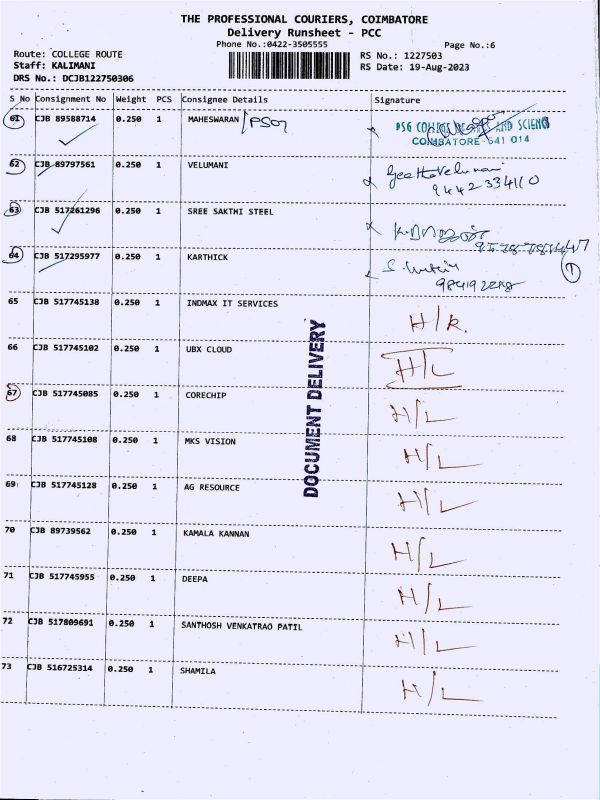 THE PROFESSIONAL COURIERS, COIMBATORE
Delivery Runsheet - PCC
Phone No.:0422-3505555 Page No.:6
Route: COLLEGE ROUTE RS No.: 1227503
Staff: KALIMANI RS Date: 19-Aug-2023
DRS No.: DCJB122750306
S No Consignment No Weight PCS Consignee Details Signature
61 CJB 89588714 0.250 1 MAHESWARAN
PSG COLLEGE AND SCIENC
COIMBATORE-641 014
62 CJB 89797561 0.250 1 VELUMANI Geetha Velumani
9442334110
63 CJB 517261296 0.250 1 SREE SAKTHI STEEL
64 CJB 517295977 0.250 1 KARTHICK
1
65 CJB 517745138 0.250 1 INDMAX IT SERVICES H/R.
66 CJB 517745102 0.250 1 UBX CLOUD H/L
67 CJB 517745085 0.250 1 CORECHIP H/L
68 CJB 517745108 0.250 1 MKS VISION H/L
69 CJB 517745128 0.250 1 AG RESOURCE H/L
70 CJB 89739562 0.250 1 KAMALA KANNAN H/L
71 CJB 517745955 0.250 1 DEEPA H/L
72 CJB 517809691 0.250 1 SANTHOSH VENKATRAO PATIL H/L
73 CJB 516725314 0.250 1 SHAMILA H/L
DOCUMENT DELIVERY